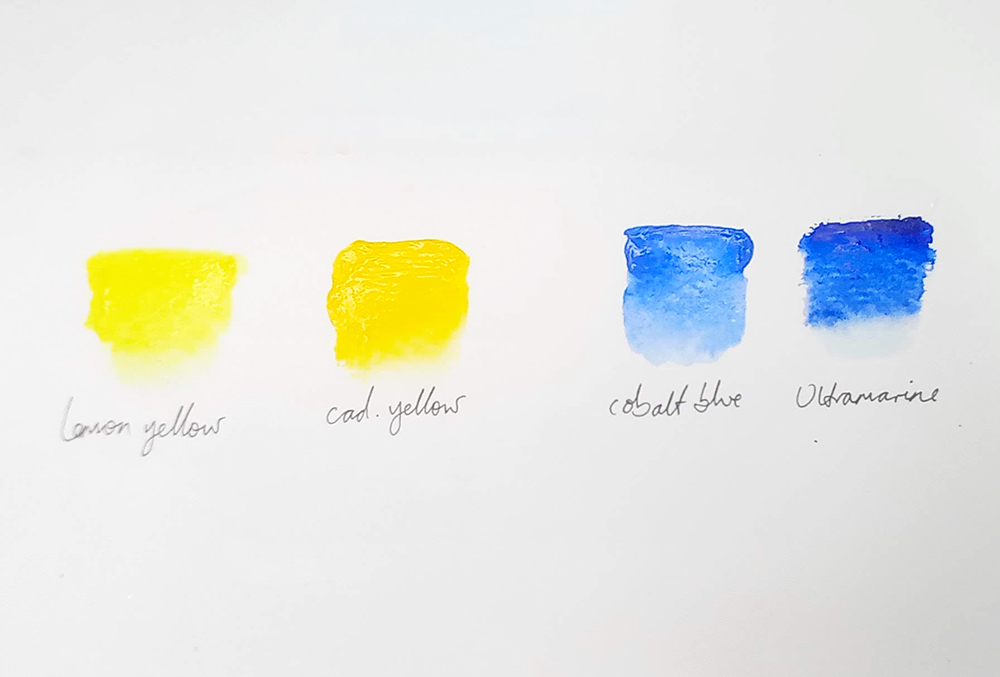 lemon yellow
cad. yellow
cobalt blue
Ultramarine